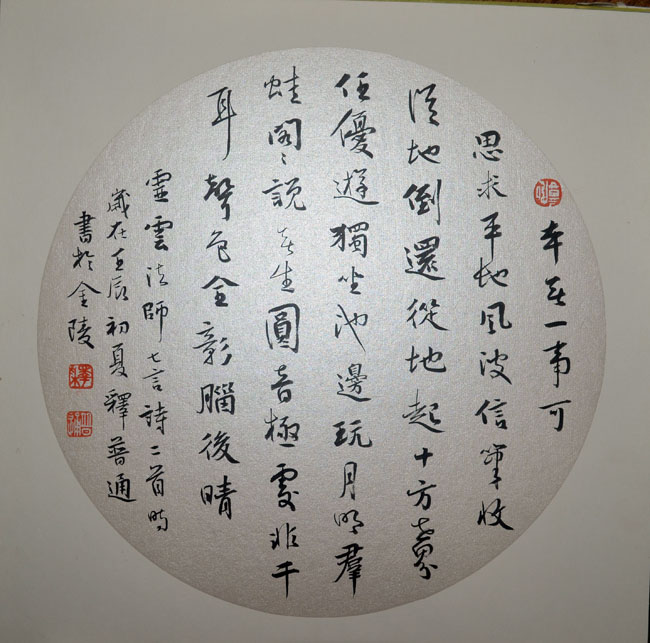 本无一事可
思求平地风波信笔收
从地倒還從地起十方世界
任優遊獨坐池邊玩月明羣
蛙閣〻説无生圓音極處非干
耳聲色全彰腦後晴
靈雲法師七言詩二首時
歲在壬辰初夏釋普通
書於金陵